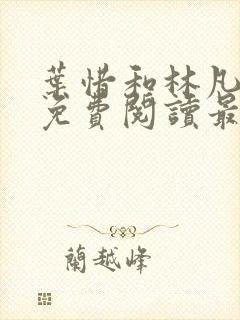 葉惜和林凡
免費閱讀最
蘭越峰